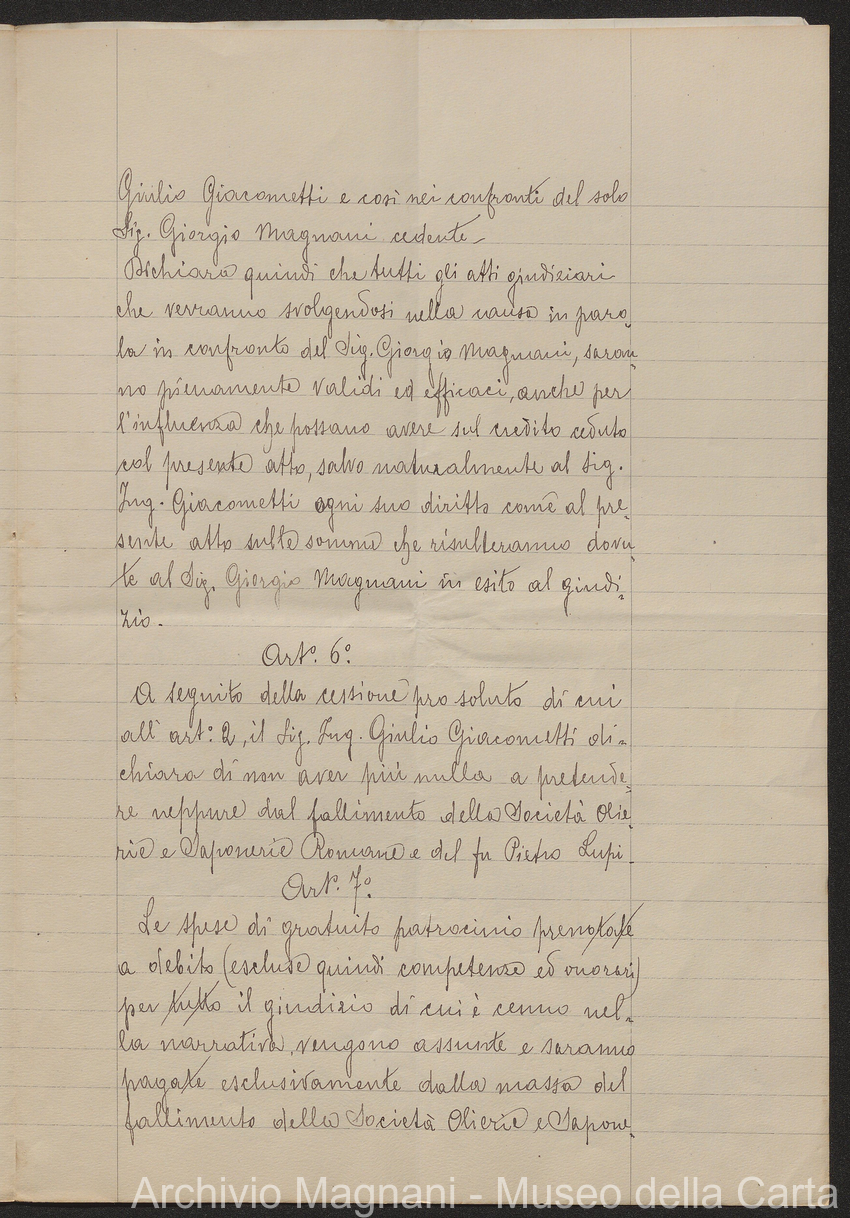 Giulio Giacometti e così nei confronti del solo
Sig. Giorgio Magnani cedente -
Dichiara quindi che tutti gli atti giudiziari
che verranno svolgendosi nella causa in paro=
la in confronto del Sig. Giorgio Magnani, saran=
no pienamente validi ed efficaci, anche per
l'influenza che possano avere sul credito ceduto
col presente atto, salvo naturalmente al Sig.
Ing. Giacometti ogni suo diritto come al pre=
sente atto sulle somme che risulteranno dovu=
te al Sig. Giorgio Magnani in esito al giudi=
zio.
Art.º 6º.
A seguito della cessione pro soluto di cui
all'art.º 2, il Sig. Ing. Giulio Giacometti di=
chiara di non aver più nulla a pretende=
re neppure dal fallimento della Società Olie=
rie e Saponerie Romane e del fu Pietro Lupi.
Art.º 7º.
Le spese di gratuito patrocinio prenotate
a debito (escluse quindi competenze ed onorari)
per tutto il giudizio di cui è cenno nel=
la narrativa, vengono assunte e saranno
pagate esclusivamente dalla massa del
fallimento della Società Olierie e Sapone=
Archivio Magnani - Museo della Carta